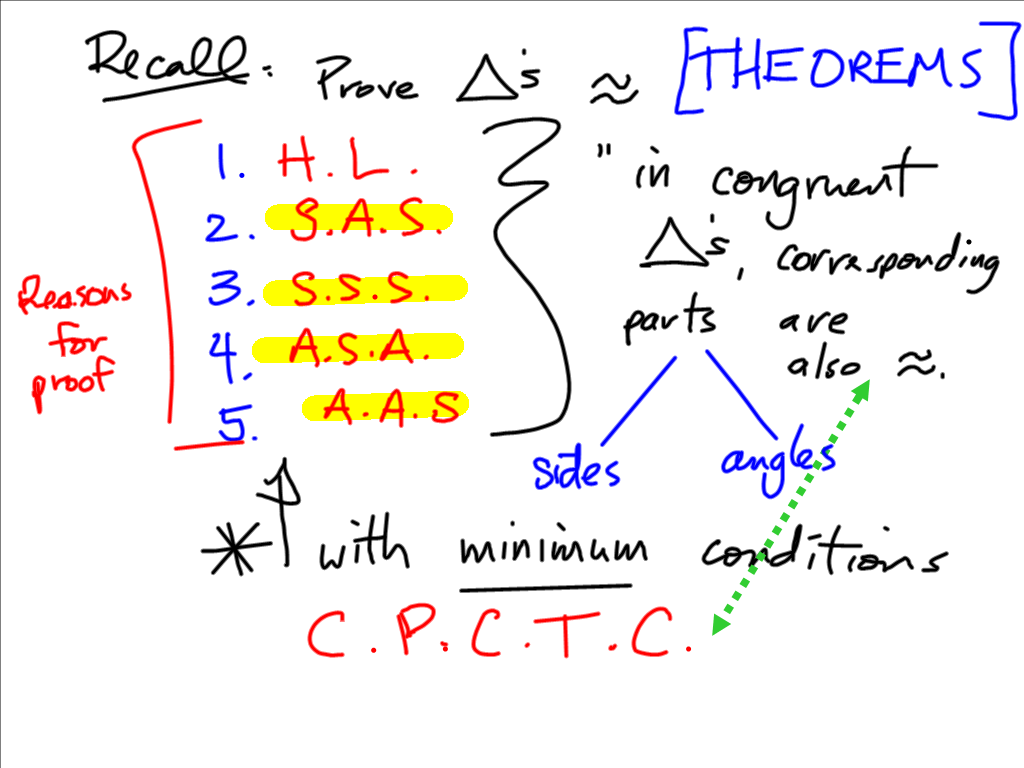 Recall: Prove △'s ≈ [THEOREMS]
1. H.L.
2. S.A.S.
3. S.S.S.
4. A.S.A.
5. A.A.S
Reasons
for
proof
" in congruent
△'s, corresponding
parts are
also ≈.
sides angles
* with minimum conditions
C.P.C.T.C.